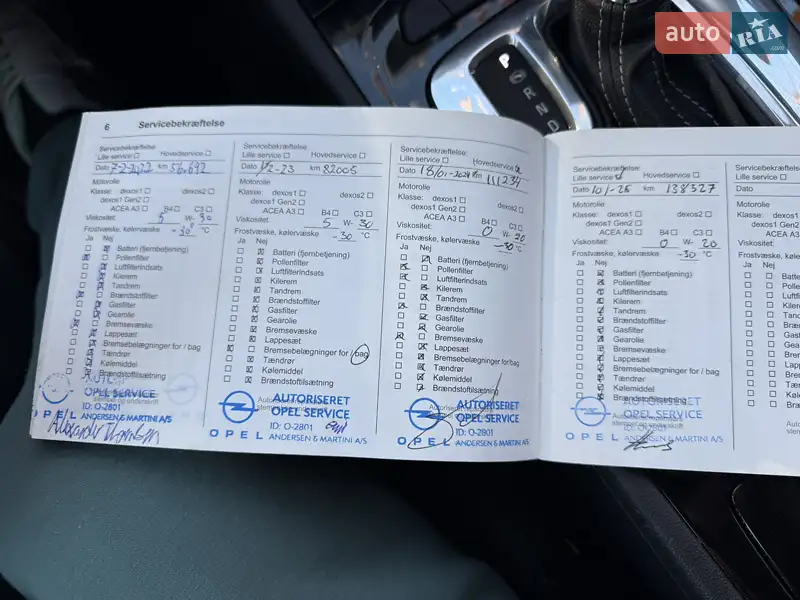 auto RIA .com
P
R
N
D
6 Servicebekræftelse
Servicebekræftelse:
Lille service Hovedservice
Dato 7-2-2022 km 56.692
Motorolie
Klasse: dexos1 dexos2
dexos1 Gen2
ACEA A3 B4 C3
Viskositet: 5 W- 30
Frostvæske, kølervæske -30 °C
Ja Nej
Batteri (fjernbetjening)
Pollenfilter
Luftfilterindsats
Kilerem
Tandrem
Brændstoffilter
Gasfilter
Gearolie
Bremsevæske
Lappesæt
Bremsebelægninger for / bag
Tændrør
Kølemiddel
OPEL SERVICE
ID: O-2801
OPEL ANDERSEN & MARTINI A/S
Servicebekræftelse:
Lille service Hovedservice
Dato 1/2-23 km 82005
Motorolie
Klasse: dexos1 dexos2
dexos1 Gen2
ACEA A3 B4 C3
Viskositet: 5 W- 30
Frostvæske, kølervæske -30 °C
Ja Nej
Batteri (fjernbetjening)
Pollenfilter
Luftfilterindsats
Kilerem
Tandrem
Brændstoffilter
Gasfilter
Gearolie
Bremsevæske
Lappesæt
Bremsebelægninger for / bag
Tændrør
Kølemiddel
Brændstoftilsætning
AUTORISERET
OPEL SERVICE
ID: O-2801
OPEL ANDERSEN & MARTINI A/S
Servicebekræftelse:
Lille service Hovedservice
Dato 18/01-2024 km 111234
Motorolie
Klasse: dexos1 dexos2
dexos1 Gen2
ACEA A3 B4 C3
Viskositet: 0 W- 20
Frostvæske, kølervæske -30 °C
Ja Nej
Batteri (fjernbetjening)
Pollenfilter
Luftfilterindsats
Kilerem
Tandrem
Brændstoffilter
Gasfilter
Gearolie
Bremsevæske
Lappesæt
Bremsebelægninger for/bag
Tændrør
Kølemiddel
Brændstoftilsætning
AUTORISERET
OPEL SERVICE
ID: O-2801
OPEL ANDERSEN & MARTINI A/S
Servicebekræftelse:
Lille service Hovedservice
Dato 10/1-25 km 138327
Motorolie
Klasse: dexos1 dexos2
dexos1 Gen2
ACEA A3 B4 C3
Viskositet: 0 W- 20
Frostvæske, kølervæske -30 °C
Ja Nej
Batteri (fjernbetjening)
Pollenfilter
Luftfilterindsats
Kilerem
Tandrem
Brændstoffilter
Gasfilter
Gearolie
Bremsevæske
Lappesæt
Bremsebelægninger for / bag
Tændrør
Kølemiddel
Brændstoftilsætning
AUTORISERET
OPEL SERVICE
OPEL ANDERSEN & MARTINI A/S
Servicebekræftelse
Lille service
Dato
Motorolie
Klasse: dexos1
dexos1 Gen2
ACEA A3
Viskositet:
Frostvæske,
Ja Nej